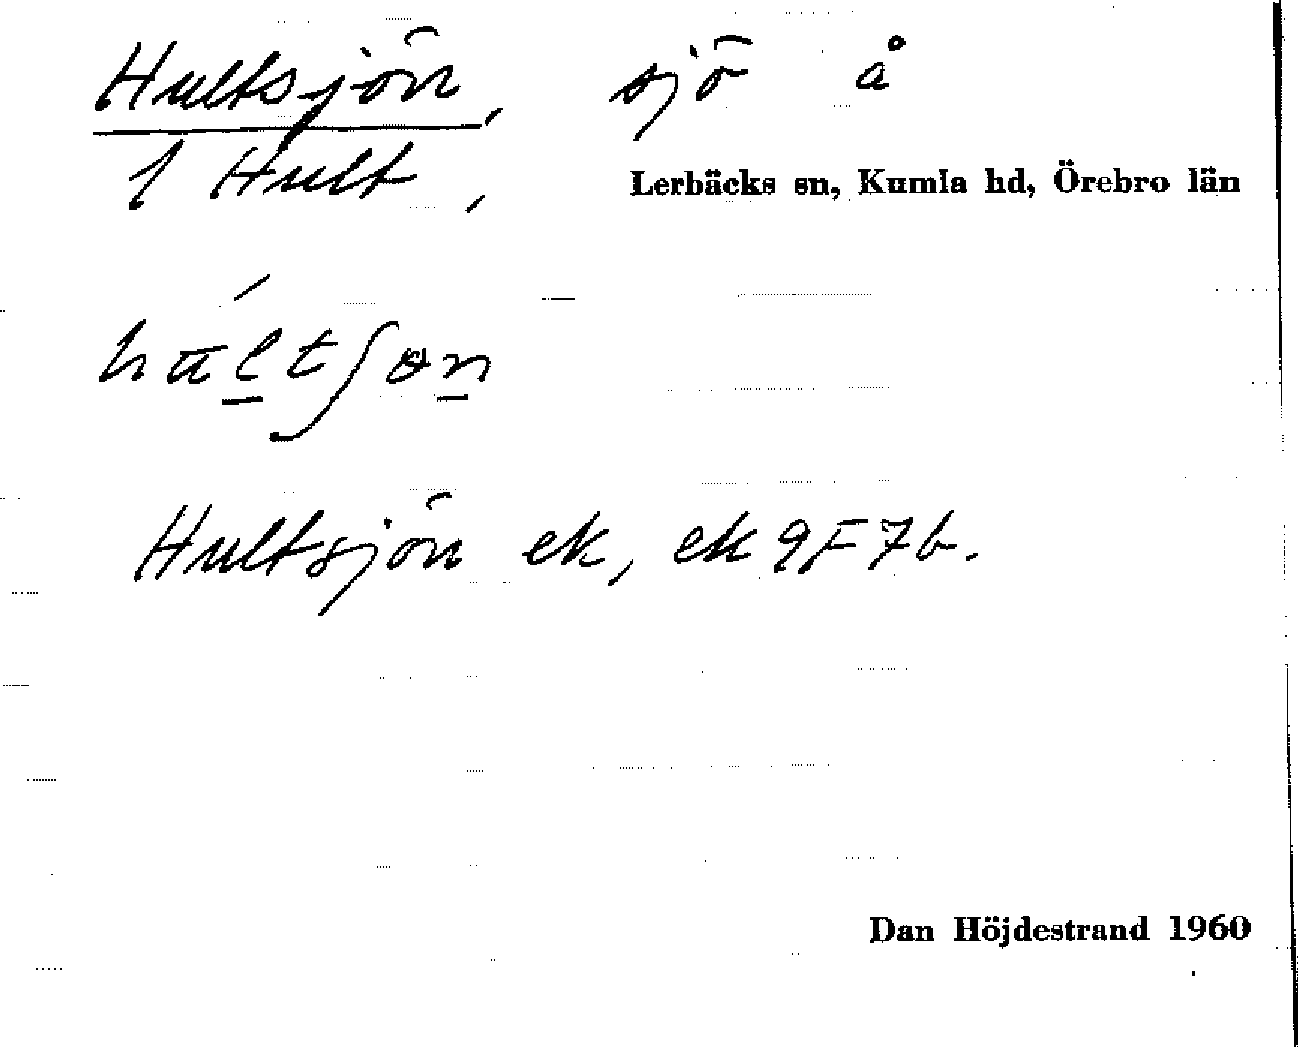 Hultsjön, sjö å
1 Hult,
Lerbäcks sn, Kumla hd, Örebro län
Hultsjön ek, ek 9F7b.
Dan Höjdestrand 1960